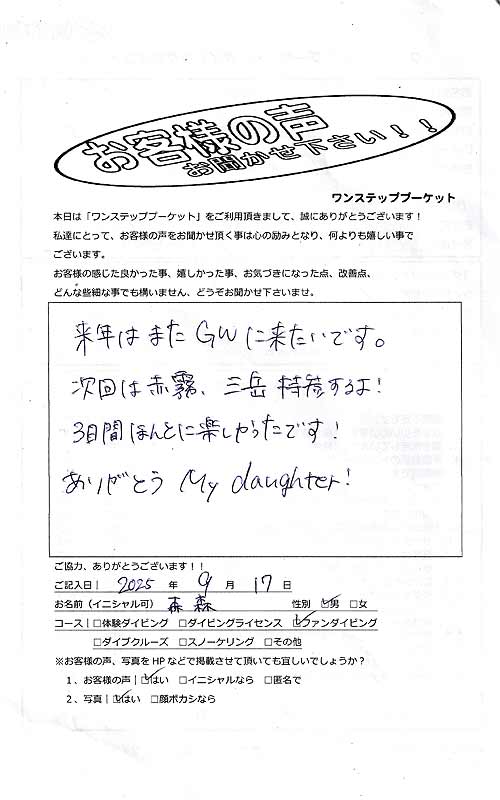 お客様の声
お聞かせ下さい！！
ワンステッププーケット
本日は「ワンステッププーケット」をご利用頂きまして、誠にありがとうございます！
私達にとって、お客様の声をお聞かせ頂く事は心の励みとなり、何よりも嬉しい事で
ございます。
お客様の感じた良かった事、嬉しかった事、お気づきになった点、改善点、
どんな些細な事でも構いません、どうぞお聞かせ下さいませ。
来年はまたGWに来たいです。
次回は赤霧、三岳 持参するよ!
3日間ほんとに楽しかったです!
ありがとう My daughter!
ご協力、ありがとうございます！！
ご記入日｜ 2025 年 9 月 17 日
お名前（イニシャル可） 森 性別 ☑男 □女
コース｜□体験ダイビング □ダイビングライセンス ☑ファンダイビング
□ダイブクルーズ □スノーケリング □その他
※お客様の声、写真をHPなどで掲載させて頂いても宜しいでしょうか？
１、お客様の声｜☑はい □イニシャルなら □匿名で
２、写真｜☑はい □顔ボカシなら